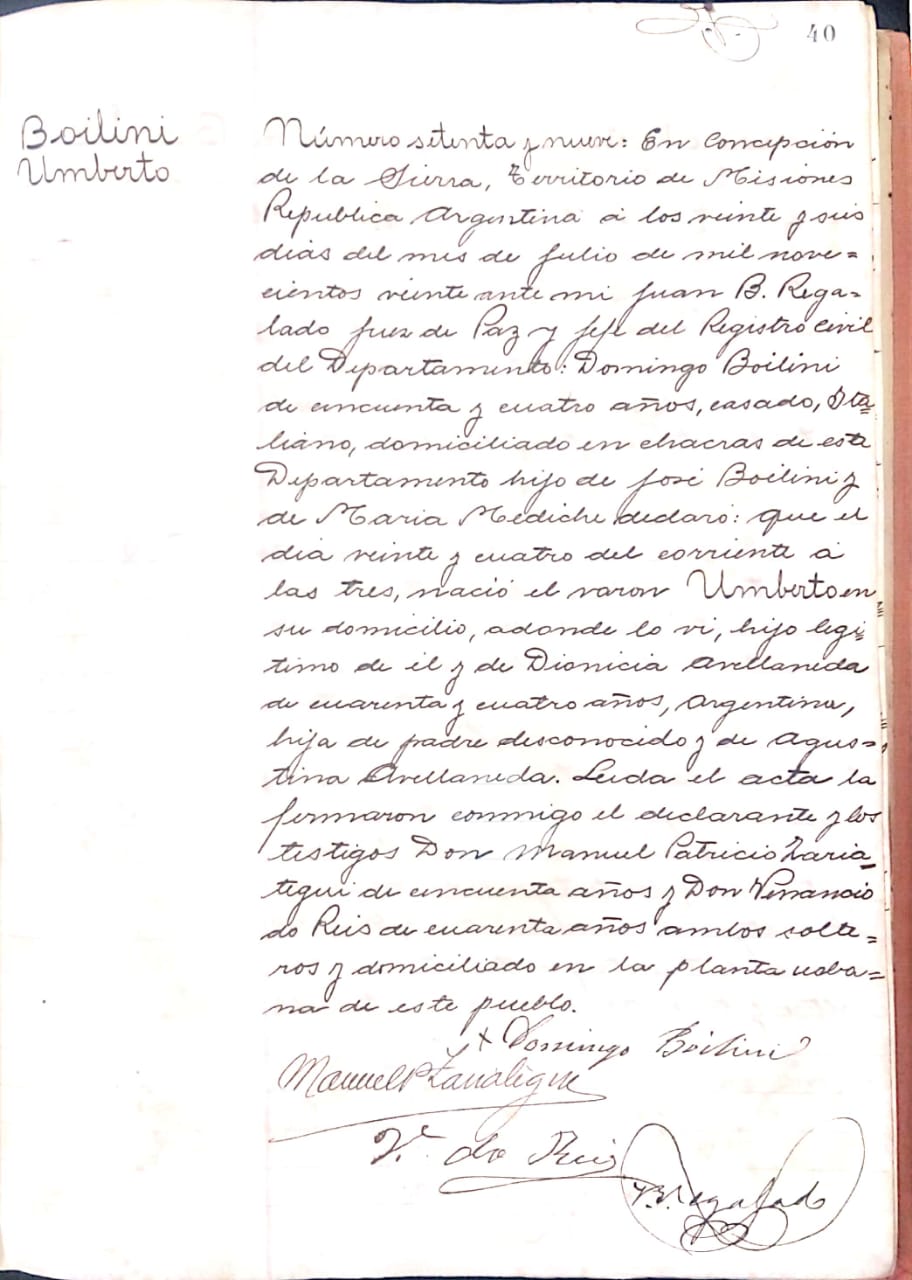 40
Boilini
Umberto
Número setenta y nueve: En Concepción
de la Sierra, Territorio de Misiones
Republica Argentina á los veinte y seis
dias del mes de Julio de mil nove=
cientos veinte ante mi Juan B. Rega=
lado Juez de Paz y Jefe del Registro civil
del Departamento: Domingo Boilini
de cincuenta y cuatro años, casado, Ita=
liano, domiciliado en chacras de este
Departamento hijo de José Boilini y
de Maria Mediche declaró: que el
dia veinte y cuatro del corriente á
las tres, nació el varon Umberto en
su domicilio, adonde lo vi, hijo legi=
timo de él y de Dionicia Avellaneda
de cuarenta y cuatro años, Argentina,
hija de padre desconocido y de Agus=
tina Avellaneda. Leida el acta la
firmaron conmigo el declarante y los
testigos Don Manuel Patricio Zaria=
tegui de cincuenta años y Don Venancio
do Reis de cuarenta años ambos solte=
ros y domiciliado en la planta urba=
na de este pueblo.
x Domingo Boilini
Manuel P Zariategui
V. do Reis
J.B. Regalado